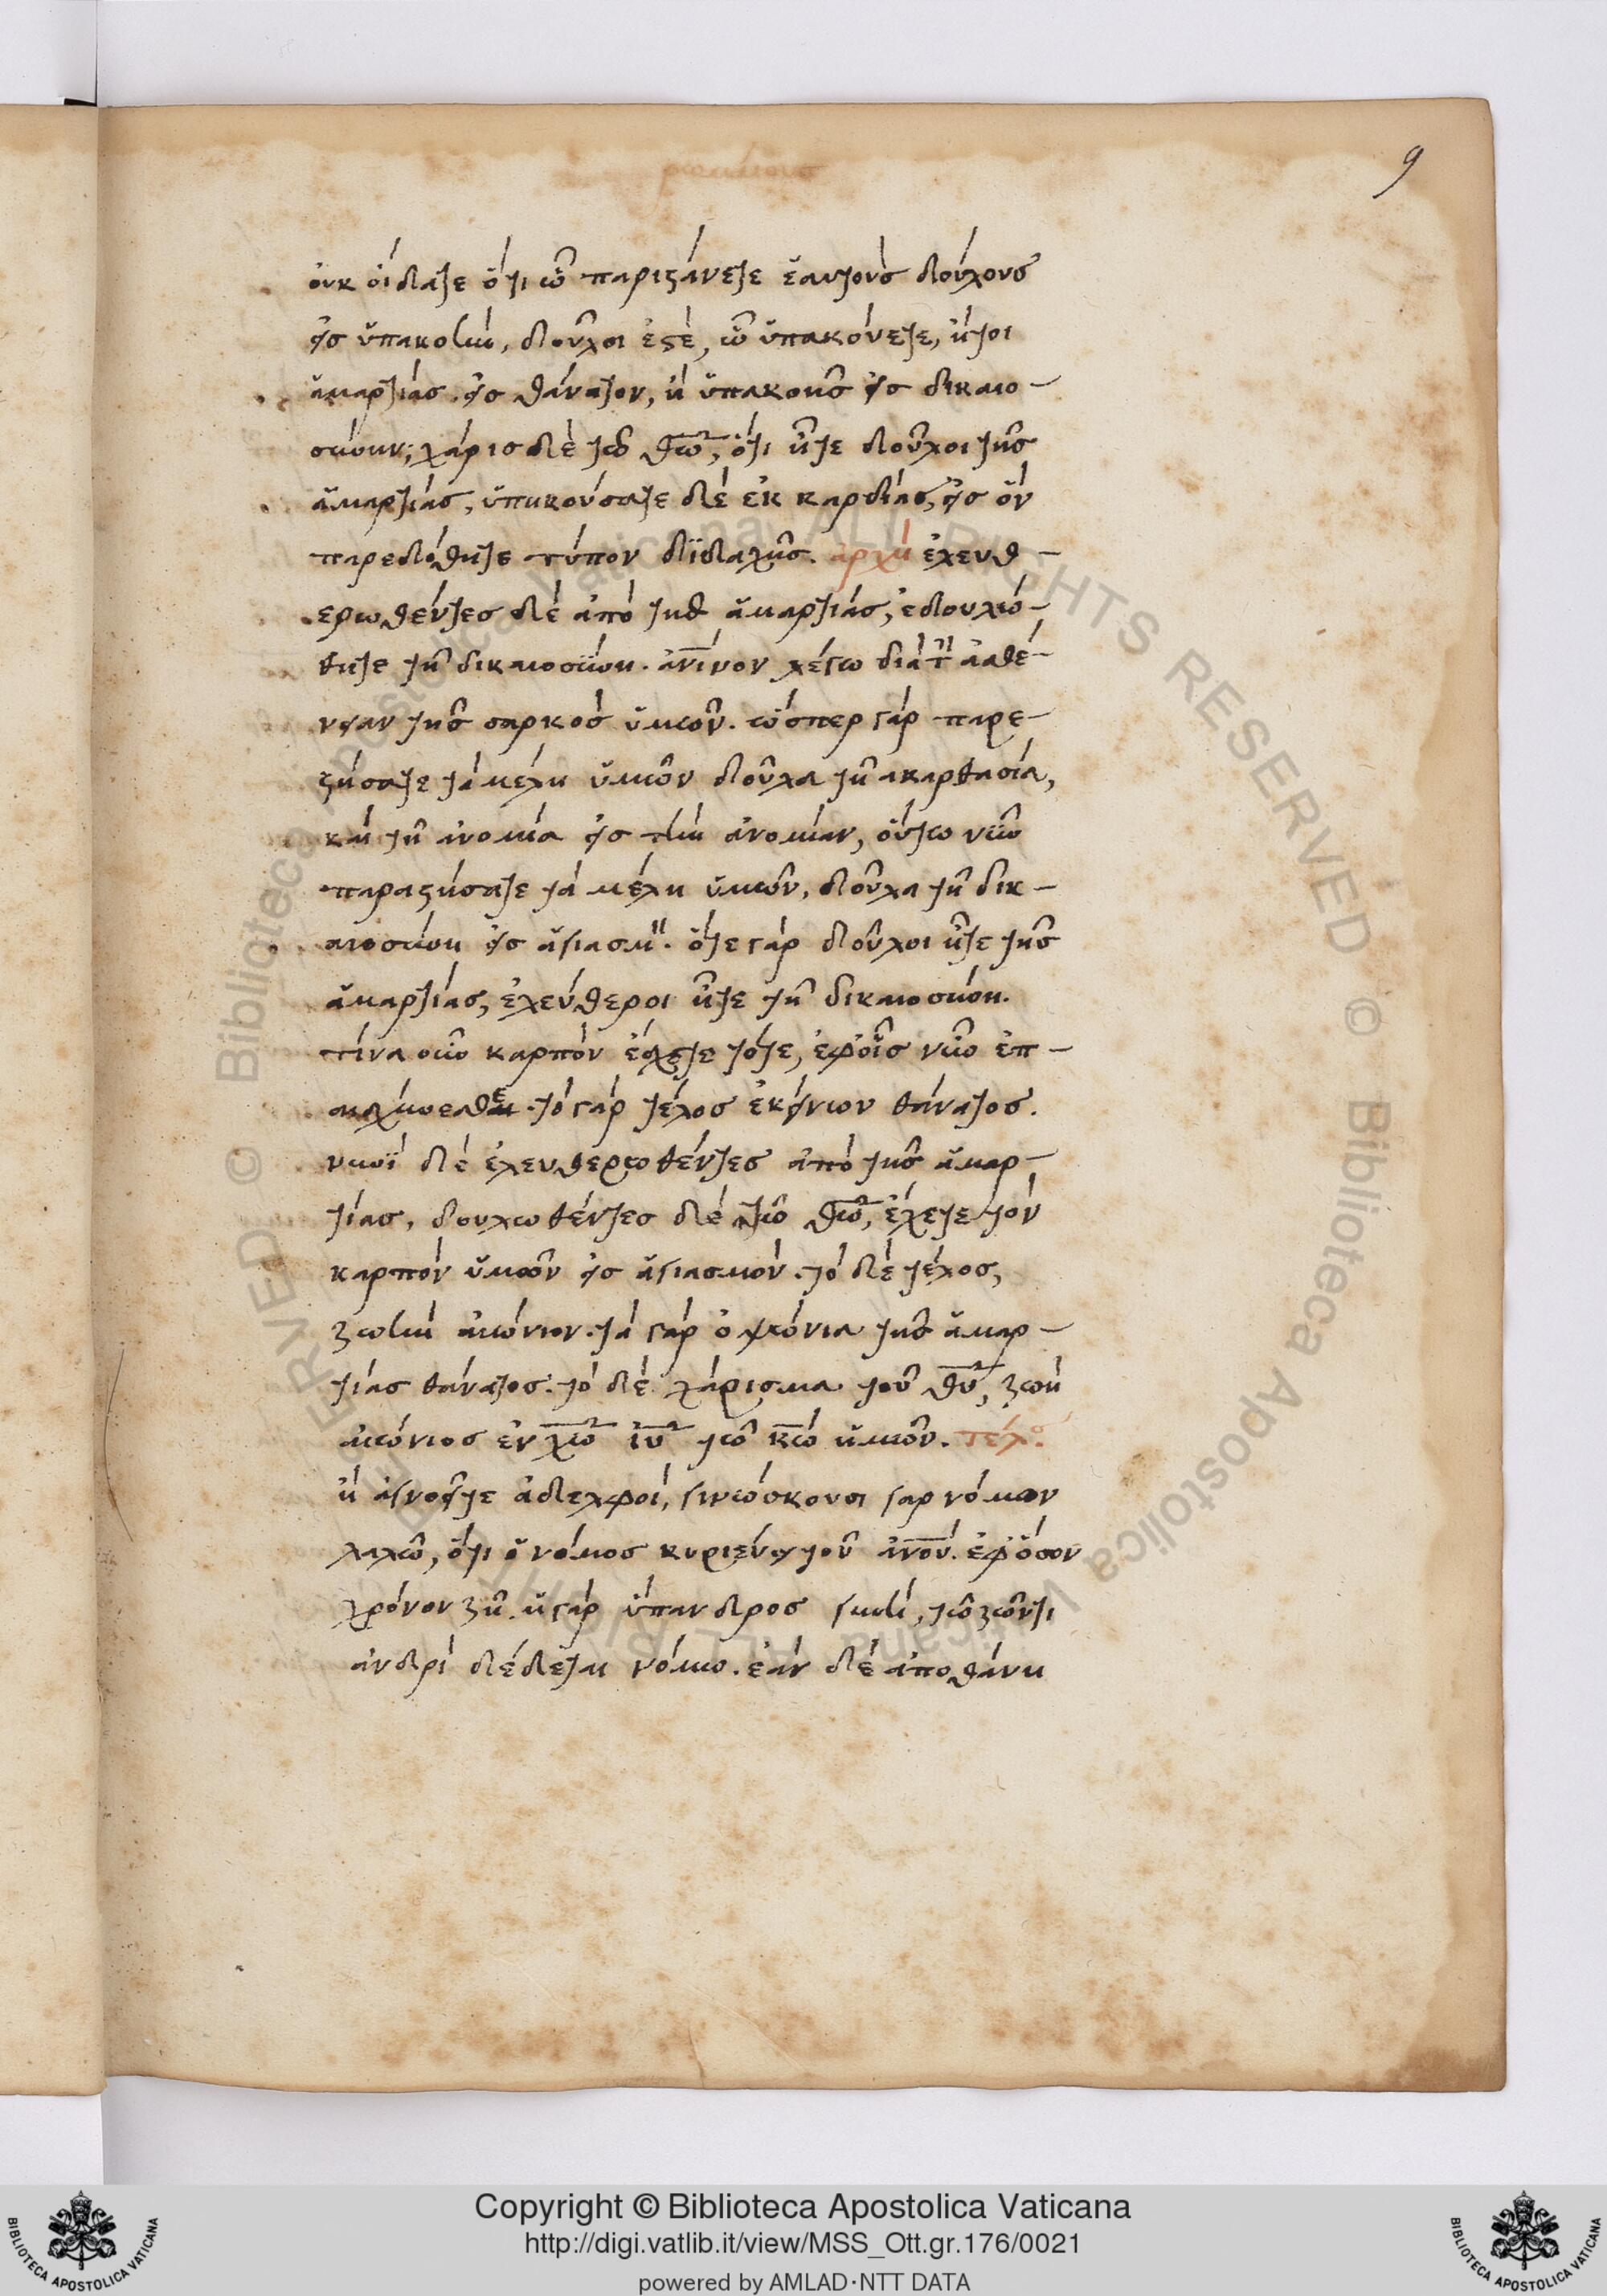 ρωμαίους
9
οὐκ οἴδατε ὅτι ὧ παριστάνετε ἑαυτοὺς δούλους
εἰς ὑπακοὴν, δοῦλοι ἐστὲ, ὧ ὑπακούετε, ἤτοι
ἁμαρτίας εἰς θάνατον, ἢ ὑπακοῆς εἰς δικαιο-
σύνην; χάρις δὲ τῶ θ̅ω̅, ὅτι ἦτε δοῦλοι τῆς
ἁμαρτίας, ὑπηκούσατε δὲ ἐκ καρδίας, εἰς ὃν
παρεδόθητε τύπον διδαχῆς. ἀρχὴ ἐλευθ-
ερωθέντες δὲ ἀπὸ τῆς ἁμαρτίας, ἐδουλώ-
θητε τῆ δικαιοσύνη. ἀν̅ι̅νον λέγω διὰ τ̅ὴ̅ ἀσθέ-
νειαν τῆς σαρκὸς ὑμῶν. ὥσπερ γὰρ παρε-
στήσατε τὰ μέλη ὑμῶν δοῦλα τῆ ακαρθασία,
καὶ τῆ ἀνομία εἰς τὴν ἀνομίαν, οὕτω νῦν
παραστήσατε τὰ μέλη ὑμῶν, δοῦλα τῆ δικ-
αιοσύνη εἰς ἁγιασμ̀. ὅτε γὰρ δοῦλοι ἦτε τῆς
ἁμαρτίας, ἐλεύθεροι ἦτε τῆ δικαιοσύνη.
τίνα οὖν καρπὸν ἔχετε τότε, ἐφοἷς νῦν ἐπ-
αισχύνεσθε. τὸ γὰρ τέλος ἐκείνων θάνατος.
νυνὶ δὲ ἐλευθερωθέντες ἀπὸ τῆς ἁμαρ-
τίας, δουλωθέντες δὲ τῶ θ̅ω̅, ἔχετε τὸν
καρπὸν ὑμῶν εἰς ἁγιασμόν. τὸ δὲ τέλος,
ζωὴν αἰώνιον. τὰ γὰρ ὀψώνια τῆς ἁμαρ-
τίας θάνατος. τὸ δὲ χάρισμα τοῦ θ̅υ̅, ζωὴ
αἰώνιος ἐν χ̅ω̅ ἰ̅υ̅ τῶ κ̅ω̅ ἡμῶν. τέλο
ἢ ἀγνοεῖτε ἀδελφοὶ, γινώσκουσι γαρ νόμον
λαλῶ, ὅτι ὁ νόμος κυριεύει τοῦ ἀν̅ο̅υ̅. ἐφ ὅσον
χρόνον ζῆ. ἡ γὰρ ὕπανδρος γυνὴ, τῶ ζῶντι
ἀνδρὶ δέδεται νόμω. ἐὰν δὲ ἀποθάνη
© Biblioteca Apostolica Vaticana ALL RIGHTS RESERVED © Biblioteca Apostolica Vaticana ALL RIGHTS RESERVED
Copyright © Biblioteca Apostolica Vaticana
http://digi.vatlib.it/view/MSS_Ott.gr.176/0021
powered by AMLAD·NTT DATA
BIBLIOTECA APOSTOLICA VATICANA
BIBLIOTECA APOSTOLICA VATICANA